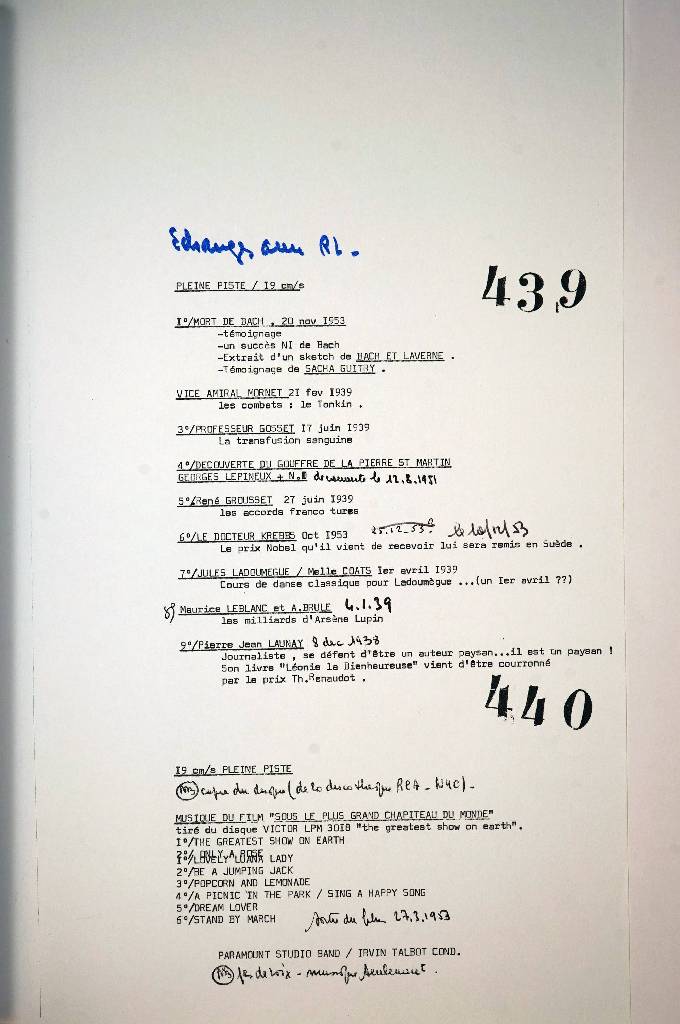 Echanges avec RL.
PLEINE PISTE / I9 cm/s
439
I°/MORT DE BACH , 20 nov I953
-témoignage
-un succès NI de Bach
-Extrait d'un sketch de BACH ET LAVERNE .
-Témoignage de SACHA GUITRY .
VICE AMIRAL MORNET 2I fev I939
les combats : le Tonkin .
3°/PROFESSEUR GOSSET I7 juin I939
La transfusion sanguine
4°/DECOUVERTE DU GOUFFRE DE LA PIERRE ST MARTIN
GEORGES LEPINEUX + N.R découverte le 12.8.1951
5°/René GROUSSET 27 juin I939
les accords franco turcs
6°/LE DOCTEUR KREBBS Oct I953 25.12.53? le 10/12/53
Le prix Nobel qu'il vient de recevoir lui sera remis en Suède .
7°/JULES LADOUMEGUE / Melle COATS Ier avril I939
Cours de danse classique pour Ladoumègue ...(un Ier avril ??)
8) Maurice LEBLANC et A.BRULE 4.1.39
les milliards d'Arsène Lupin
9°/Pierre Jean LAUNAY 8 dec 1938
Journaliste , se défent d'être un auteur paysan...il est un paysan !
Son livre "Léonie la Bienheureuse" vient d'être courronné
par le prix Th.Renaudot .
440
I9 cm/s PLEINE PISTE
copie du disque (de la discothèque RCA - NYC) -
MUSIQUE DU FILM "SOUS LE PLUS GRAND CHAPITEAU DU MONDE"
tiré du disque VICTOR LPM 30I8 "the greatest show on earth".
I°/THE GREATEST SHOW ON EARTH
2°/ ONLY A ROSE
I°/LOVELY LUANA LADY
2°/BE A JUMPING JACK
3°/POPCORN AND LEMONADE
4°/A PICNIC IN THE PARK / SING A HAPPY SONG
5°/DREAM LOVER
6°/STAND BY MARCH sortie du film 27.3.1953
PARAMOUNT STUDIO BAND / IRVIN TALBOT COND.
pas de voix - musique seulement .